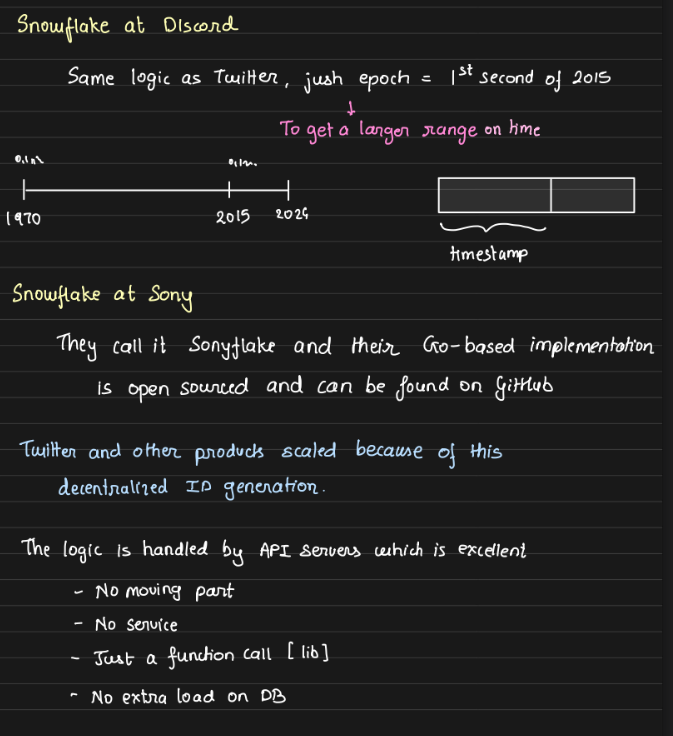 Snowflake at Discord
Same logic as Twitter, jush epoch = 1st second of 2015
To get a larger range on time
1970
2015
2024
timestamp
Snowflake at Sony
They call it Sonyflake and their Go-based implementation
is open sourced and can be found on GitHub
Twitter and other products scaled because of this
decentralized ID generation.
The logic is handled by API servers which is excellent
- No moving part
- No service
- Just a function call [lib]
- No extra load on DB